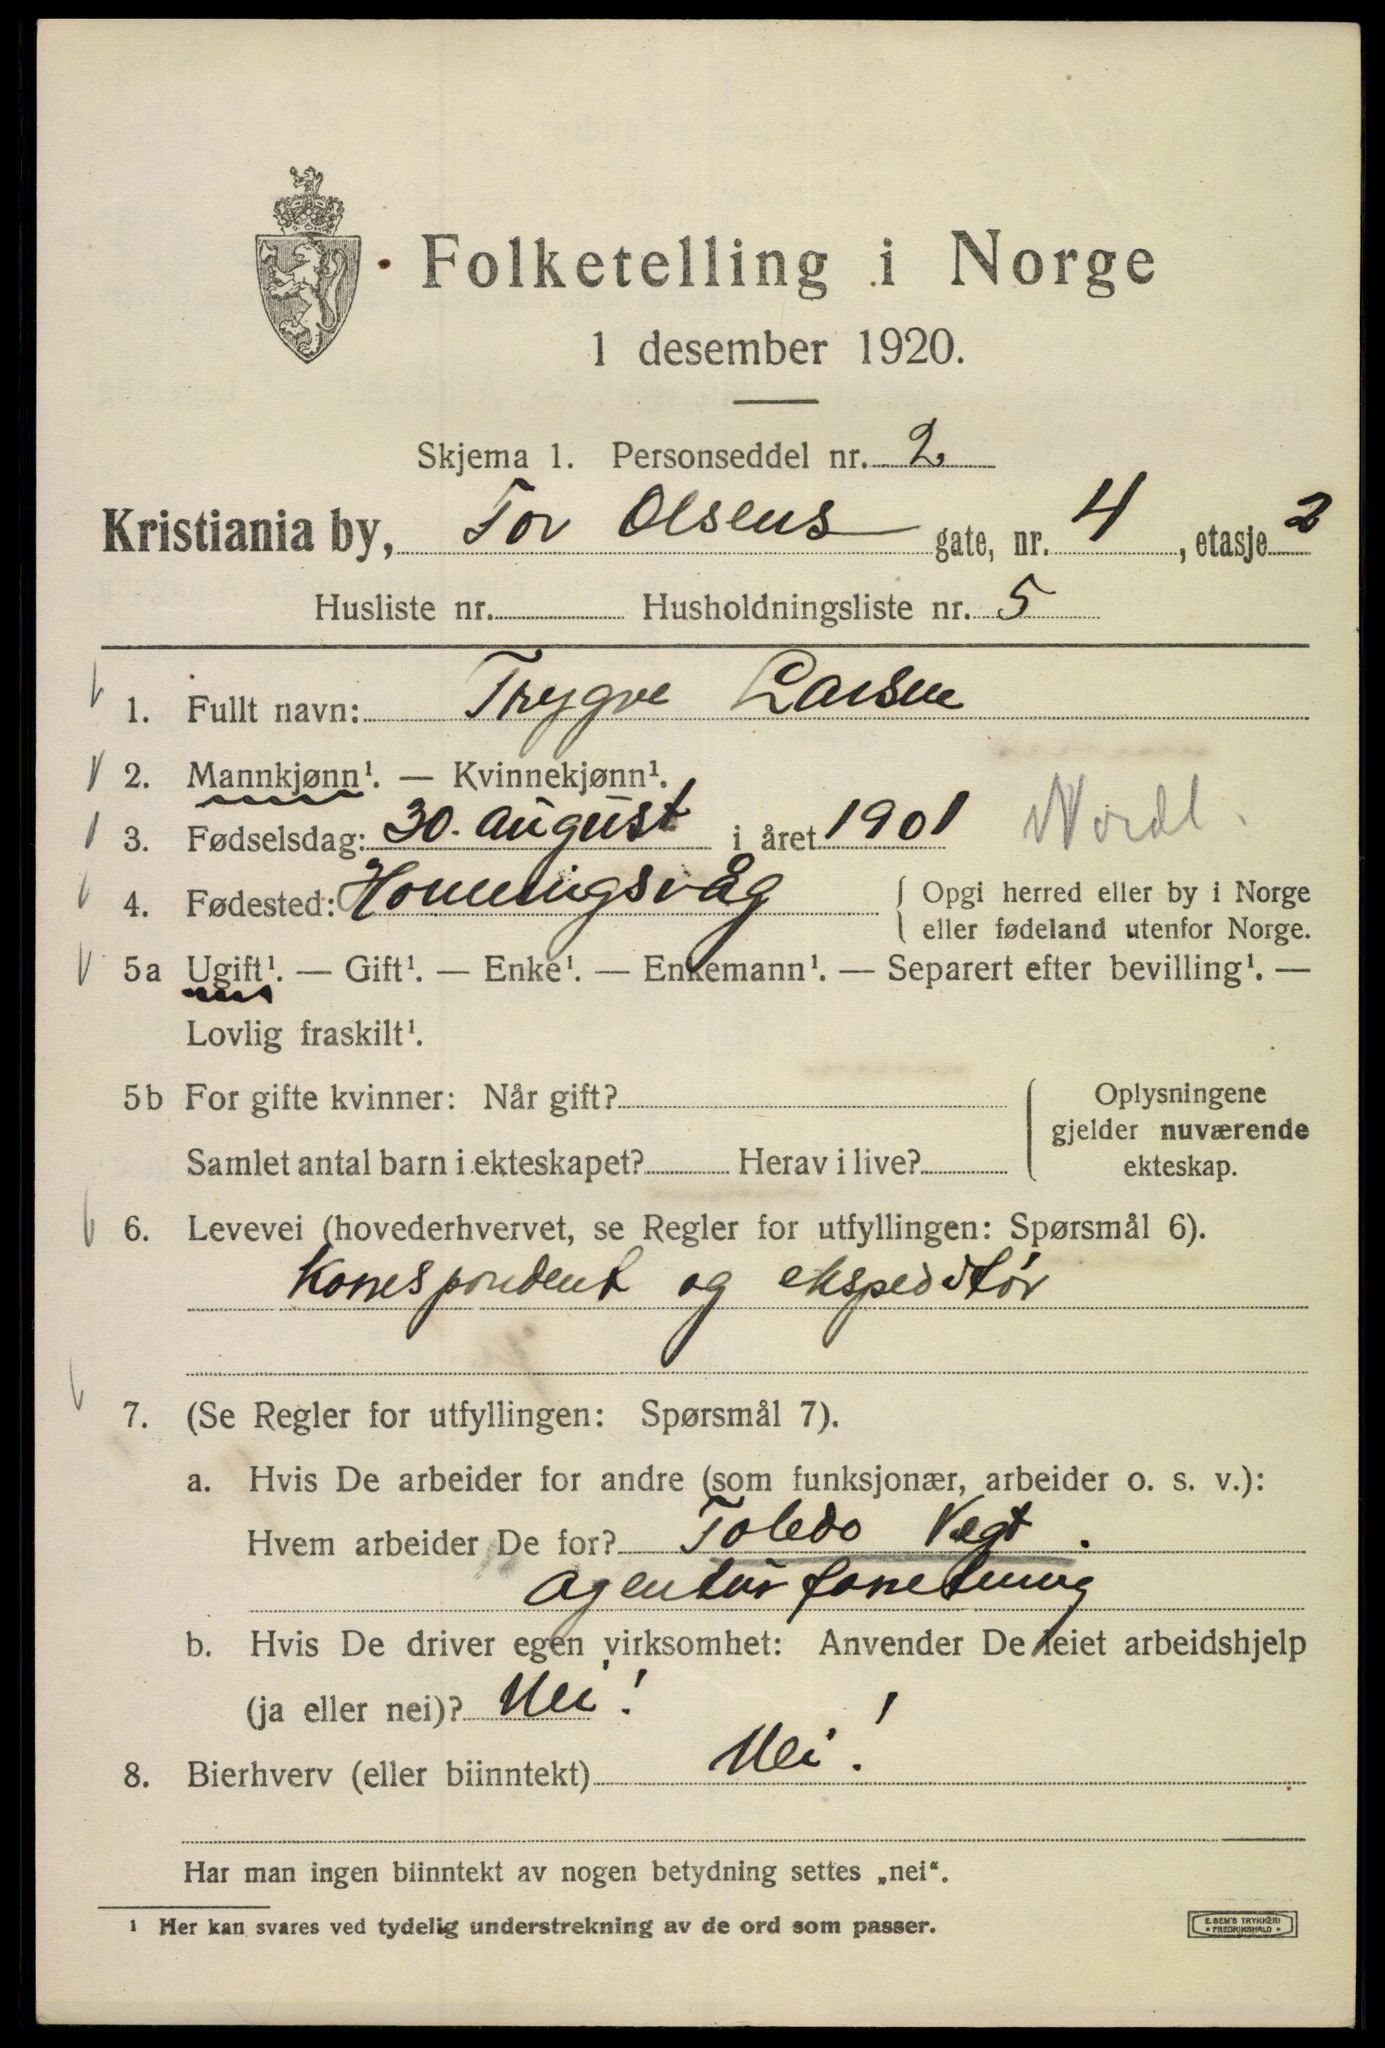 Folketelling i Norge
1 desember 1920.
Skjema 1. Personseddel nr. 2
Kristiania by, Tor Olsens gate, nr. 4, etasje 2
Husliste nr. Husholdningsliste nr. 5
1. Fullt navn: Trygve Larsen
2. Mannkjønn¹. — Kvinnekjønn¹.
3. Fødselsdag: 30. august i året 1901 Nordl.
4. Fødested: Honningsvåg { Opgi herred eller by i Norge
eller fødeland utenfor Norge.
5a Ugift¹. — Gift¹. — Enke¹. — Enkemann¹. — Separert efter bevilling¹. —
Lovlig fraskilt¹.
5b For gifte kvinner: Når gift? { Oplysningene
gjelder nuværende
Samlet antal barn i ekteskapet? Herav i live? ekteskap.
6. Levevei (hovederhvervet, se Regler for utfyllingen: Spørsmål 6).
Korrespondent og ekspeditør
7. (Se Regler for utfyllingen: Spørsmål 7).
a. Hvis De arbeider for andre (som funksjonær, arbeider o. s. v.):
Hvem arbeider De for? Toledo Vegt.
agentur forretning
b. Hvis De driver egen virksomhet: Anvender De leiet arbeidshjelp
(ja eller nei)? Nei!
8. Bierhverv (eller biinntekt) Nei!
Har man ingen biinntekt av nogen betydning settes „nei“.
¹ Her kan svares ved tydelig understrekning av de ord som passer.
E. SEM'S TRYKKERI
• FREDRIKSHALD •